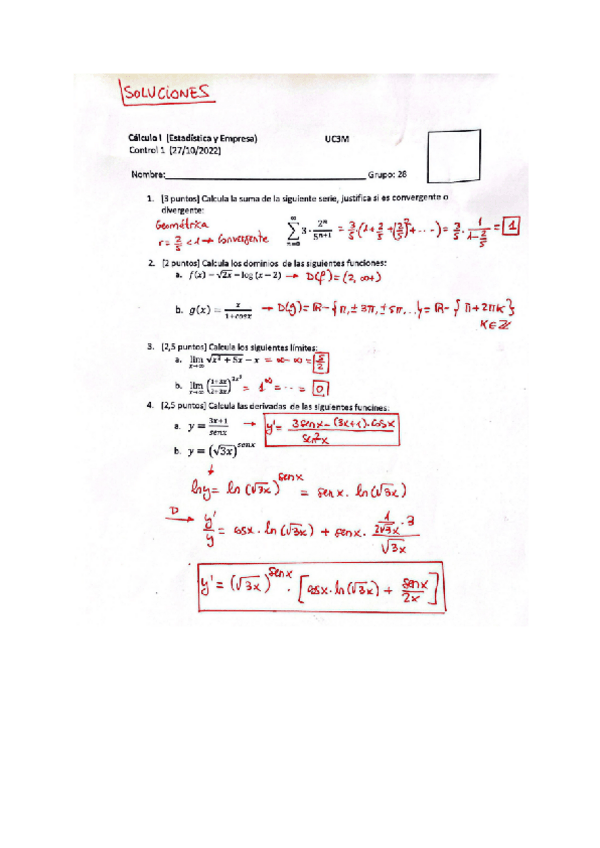 SOLUCIONES
Cálculo I (Estadística y Empresa) UC3M
Control 1 [27/10/2022]
Nombre:__________ Grupo: 28
1. [3 puntos] Calcula la suma de la siguiente serie, justifica si es convergente o
divergente:
Geométrica
r = 2/5 < 1 → Convergente
∑_{n=0}^{∞} 3 · 2^n/5^{n+1} = 3/5 (1 + 2/5 + (2/5)^2 + ...) = 3/5 · 1/(1 - 2/5) = 1
2. [2 puntos] Calcula los dominios de las siguientes funciones:
a. f(x) = √2x − log (x − 2) → D(f) = (2, ∞+)
b. g(x) = x/(1+cosx) → D(g) = R − {π, ±3π, ±5π, ...} = R − {π + 2πK}
K ∈ Z
3. [2,5 puntos] Calcule los siguientes límites:
a. lim x→∞ √x² + 5x − x = ∞ − ∞ = 5/2
b. lim = 1^∞ = ... = 0
4. [2,5 puntos] Calcula las derivadas de las siguientes funcines:
a. y = (3x+1)/senx → y' = (3senx − (3x+1)·cosx)/sen²x
b. y = (√3x)^senx
↓
lny = ln (√3x)^senx = senx · ln(√3x)
D → y'/y = cosx · ln(√3x) + senx · (1/(2√3x) · 3)/√3x
y' = (√3x)^senx · [cosx · ln(√3x) + senx/2x]